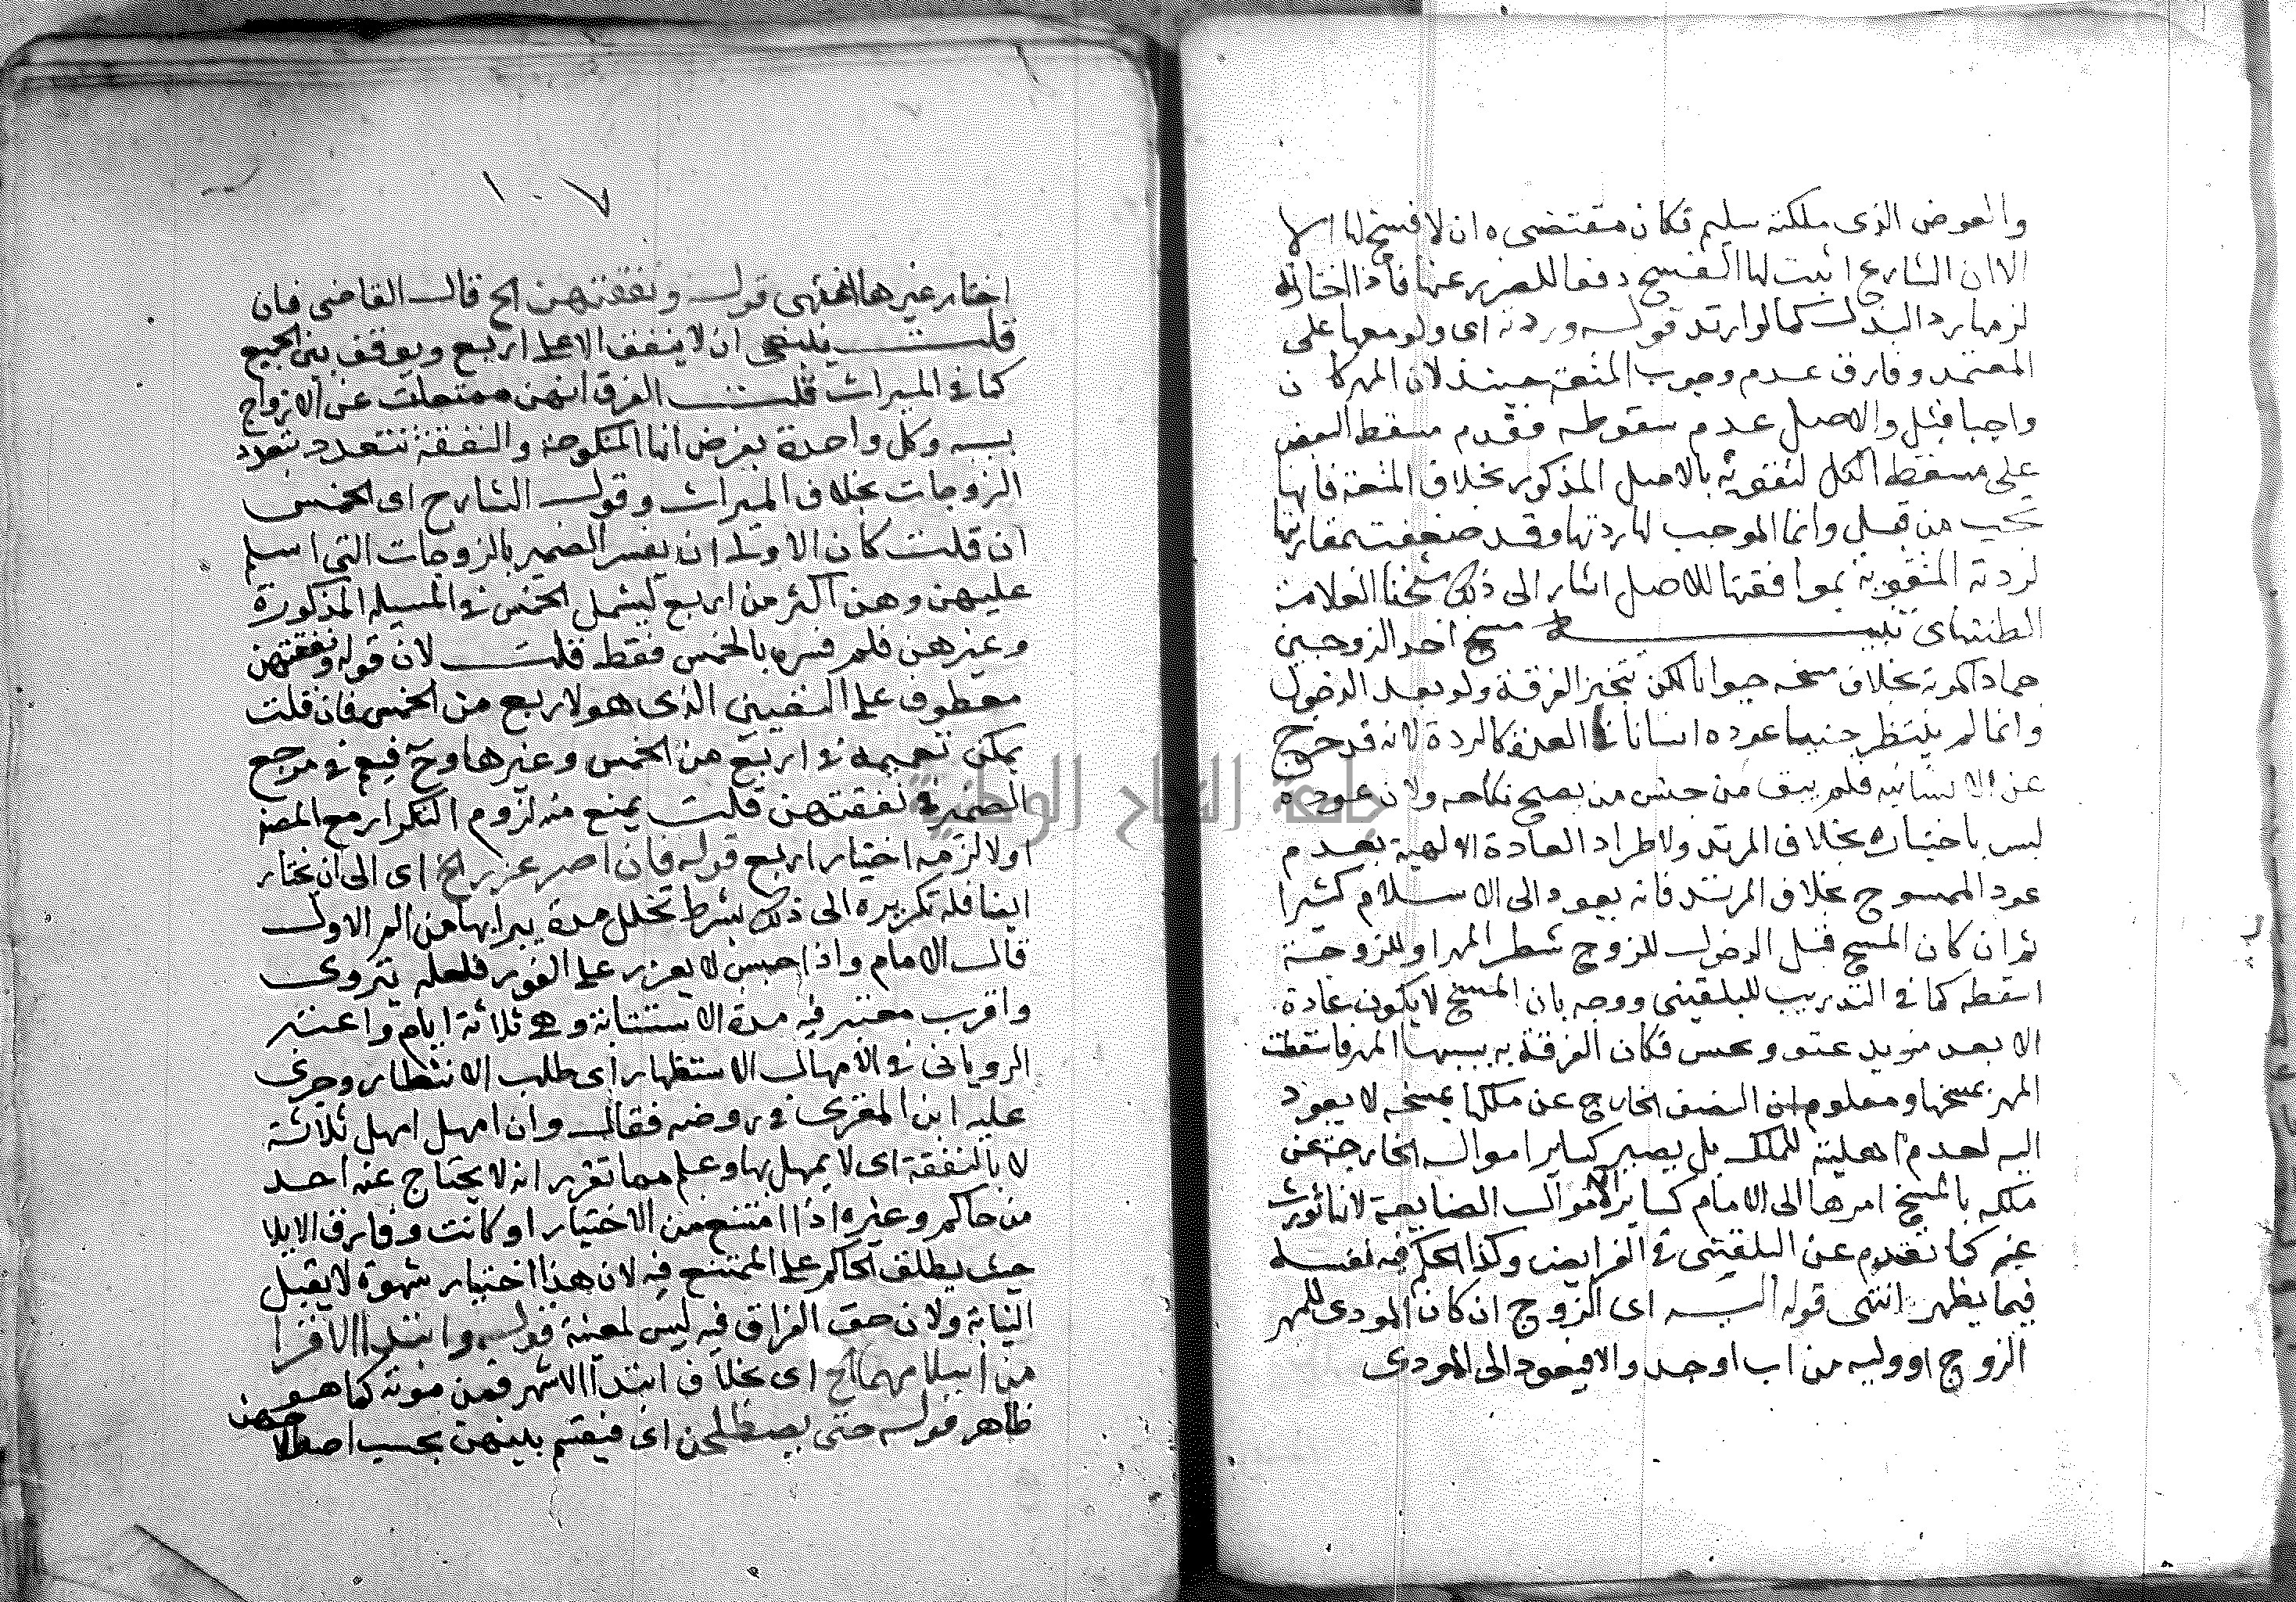 والعوض الذى ملكته سليم فكان مقتضى ه ان لا فسخ لها
الا ان الشارع اثبت لها الفسخ دفعا للضرر عنها فاذا اختارته
لزمها رد البدل كما لو ارتد قوله وردته اى ولو معها على
المعتمد وفارق عدم وجوب المتعة حينئذ لان المهر كا ن
واجبا قبل والاصل عدم سقوطه فقدم مسقط البعض
على مسقط الكل لتقويه بالاصل المذكور بخلاف المتعة فانها
تجب من قبل وانما الموجب لها ردتها وقد ضعفت بمقارنتها
لردته المتقوية بموافقتها للاصل اشار الى ذلك شيخنا العلامة
الطنتداى تنبيه مسخ احد الزوجين
جمادا كموته بخلاف مسخه حيوانا لكن تتنجز الفرقة ولو بعد الدخول
وانما لم ينتظر حينئذ عوده انسانا فى العدة كالردة لانه قد خرج
عن الانسانيه فلم يبق من جنس من يصح نكاحه ولان عوده
ليس باختياره بخلاف المرتد ولاطراد العادة الالهية بعدم
عود الممسوخ بخلاف المرتد فانه يعود الى الاسلام كثيرا
ثم ان كان المسخ قبل الدخول للزوج شطر المهر او للزوجة
اسقطه كما فى التدريب للبلقينى ووجه بان المسخ لا يكون عادة
الا بعد مزيد عتو فكان الفرقة به بسببها المهر فاسقطت
المهر بمسخها ومعلوم ان النصف الخارج عن ملكها بمسخه لا يعود
اليه لعدم اهليته للملك بل يصير كساير امواله الخارجة عن
ملكه بالمسخ امرها الى الامام كساير الاموال الضايعة لانها تورث
عنه كما تقدم عن البلقينى فى الفرايض وكذا الحكم فيه نفسه
فيما يظهر انتهى قوله اليه اى الزوج ان كان المودى للمهر
الزوج او وليه من اب او جد والا فيعود الى المودى
١٠٧
اختار غيرها انتهى قوله ونفقتهن الخ قال القاضى فان
قلت ينبغى ان لا ينفق الا على اربع ويوقف بين الجميع
كما فى الميراث قلت الفرق انهن ممتعات عن الازواج
بسببه وكل واحدة بفرض انها المنكوحة والنفقة تتعدد بتعدد
الزوجات بخلاف الميراث وقول الشارح اى الخمس
ان قلت كان الاولى ان يفسر الضمير بالزوجات التى اسلم
عليهن وهن اكثر من اربع ليشمل الخمس فى المسيله المذكورة
وغيرهن فلم فسره بالخمس فقط قلت لان قوله ونفقتهن
معطوف على التعيين الذى هو لاربع من الخمس فان قلت
يمكن تعميمه فى اربع من الخمس وغيرها وح فيعم فى مرجع
الضمير فى نفقتهن قلت يمنع منه لزوم التكرار مع
اولا لزمه اختيار اربع قوله فان اصر عزر الخ اى الى ان يختار
ايضا فله تكريره الى ذلك بشرط تخلل مدة يبرا بها من الم الاول
قال الامام واذا حبس لا يعزر على الفور فلعله يتروى
واقرب معتبر فيه مدة الاستتابة وهى ثلاثة ايام واعتبر
الرويانى فى الامهال الاستظهار اى طلب الانتظار وجرى
عليه ابن المقرى فى روضه فقال وان امهل امهل ثلاثة
لا بالنفقة اى لا يمهل بها وعلم مما تقرر انه لا يحتاج عنه احد
من حاكم وغيره اذا امتنع من الاختيار او كانت وفارق الايلا
حيث يطلق الحاكم على الممتنع فيه لان هذا اختيار شهوة لا يقبل
النيابة ولان حق الفراق فيه ليس لمعينة قوله وابتدا الاقرا
من اسلامهما الخ اى بخلاف ابتدا الاشهر فمن موته كما هو
ظاهر قوله حتى يصطلحن اى فيقسم بينهن بحسب اصطلاحهن